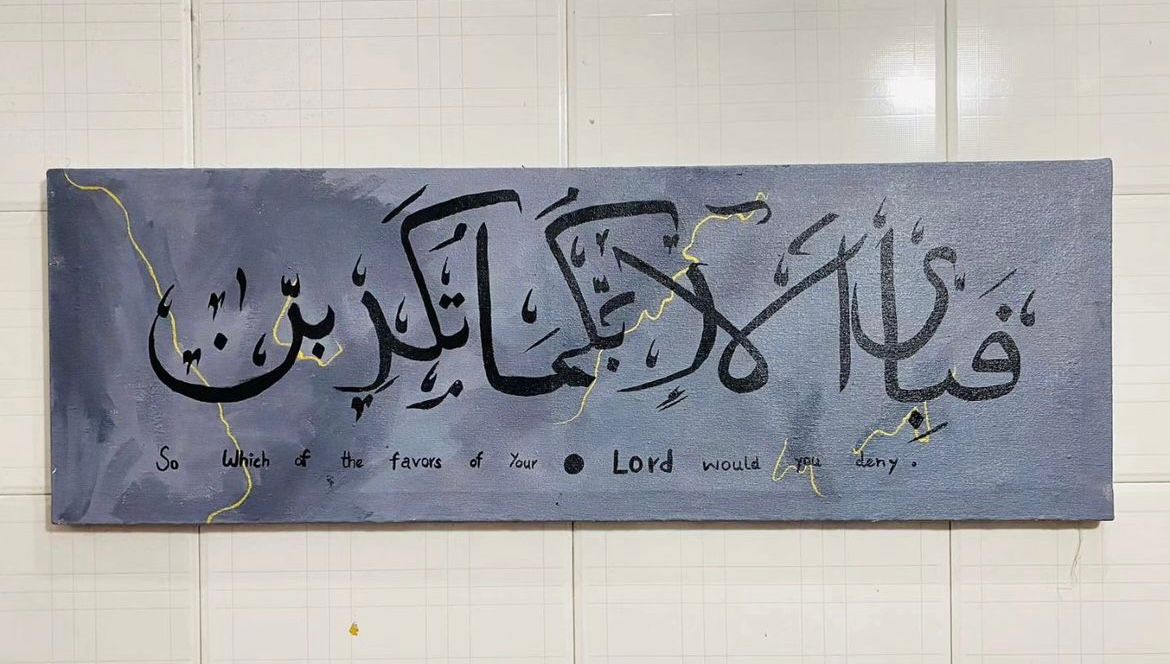 فَبِأَىِّ آلَاءِ رَبِّكُمَا تُكَذِّبٰنِ
So Which of the favors of Your ● Lord would you deny.